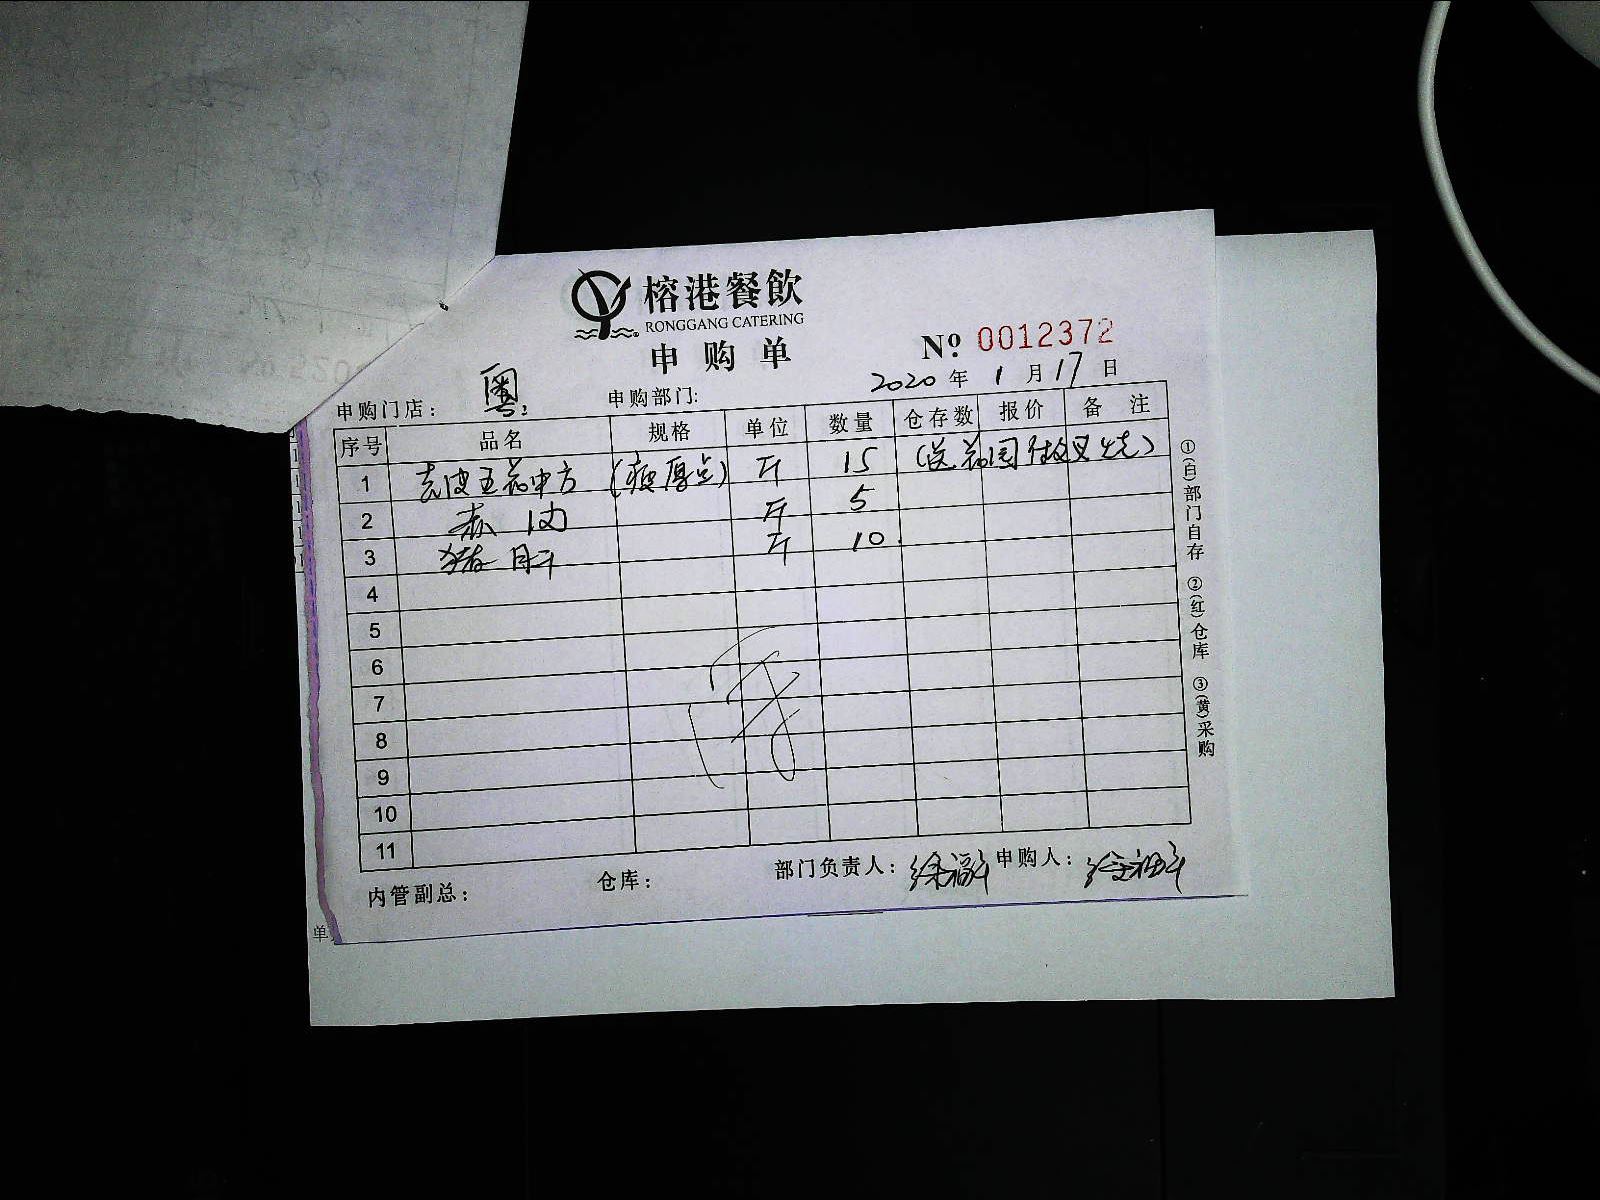 榕港餐飲
RONGGANG CATERING
申购单
№ 0012372
2020 年 1 月 17 日
申购门店： 粤 申购部门:
序号 品名 规格 单位 数量 仓存数 报价 备 注
1 去皮五花中方 (瘦厚点) 斤 15 (送花园做叉烧)
2 肉 斤 5
3 猪肝 斤 10
4
5
6
7
8
9
10
11
内管副总： 仓库： 部门负责人： 申购人：
①(白)部门自存 ②(红)仓库 ③(黄)采购
单